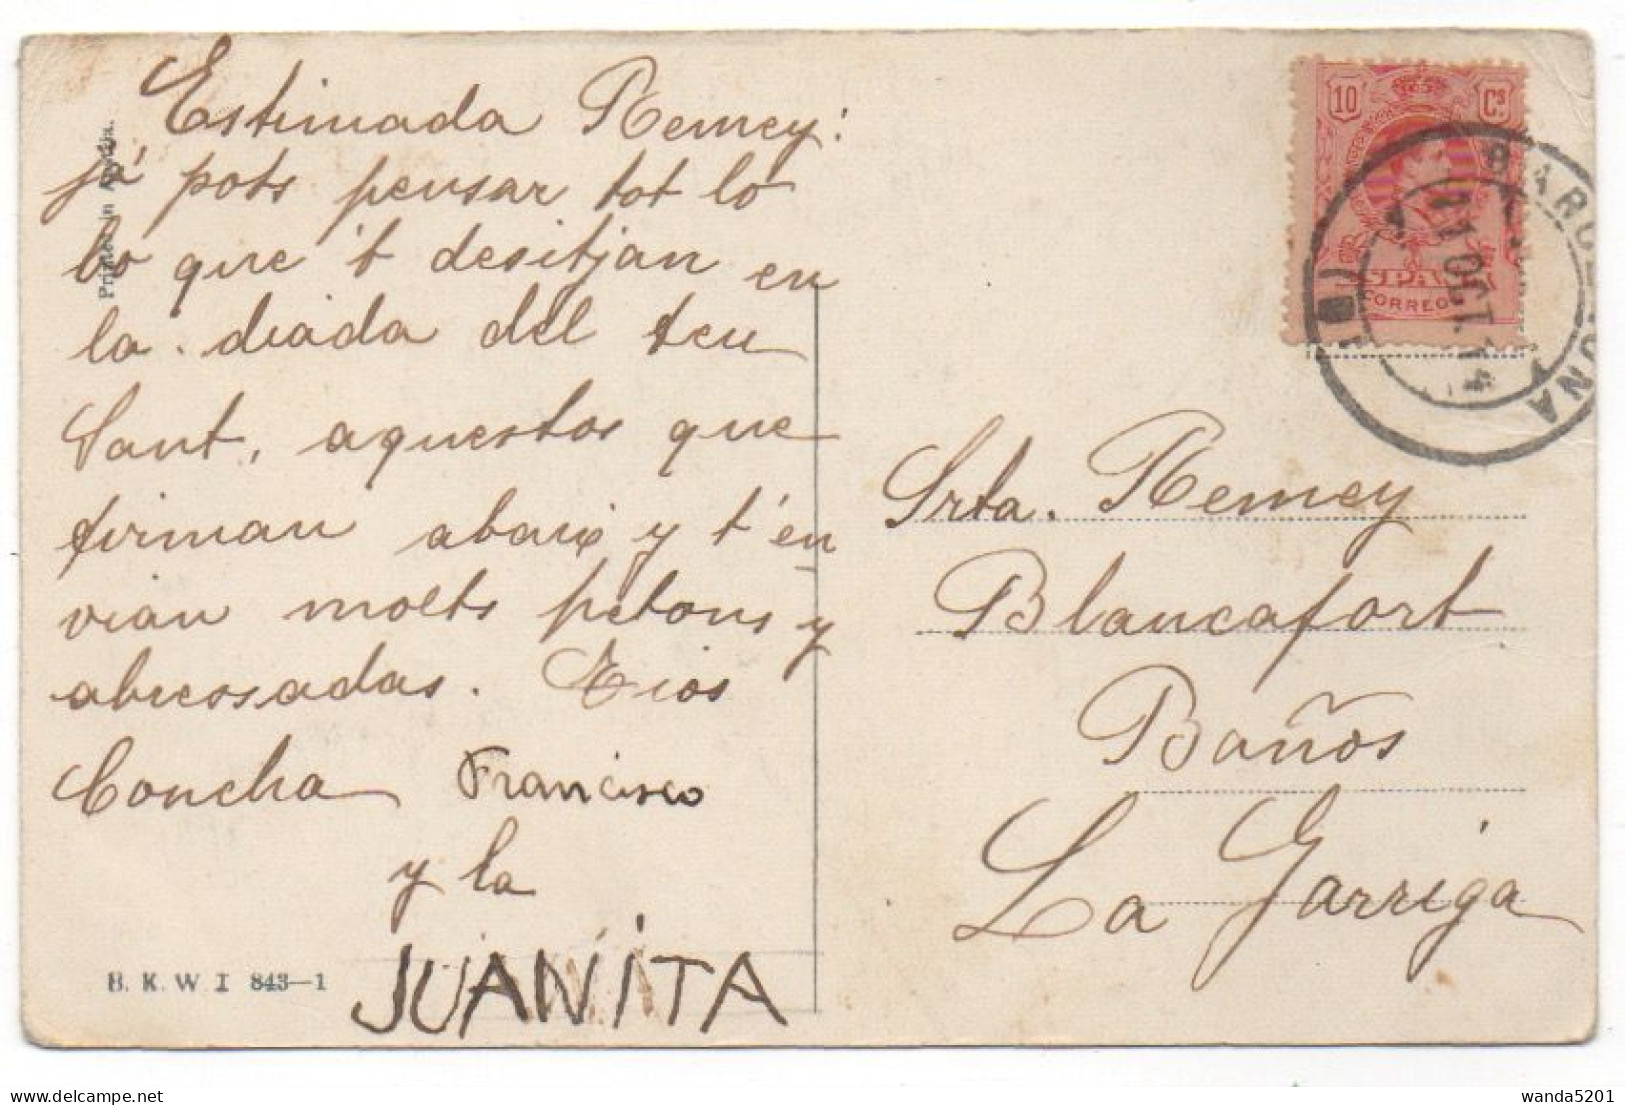 Estimada Remey:
já pots pensar tot lo
bo que 't desitjan en
la diada del teu
Sant, aquestos que
firman abaix y t'en
vian molts petons y
abrassadas. Tios
Concha Francisco
y la
JUANITA
B. K. W. I 843—1
Printed in Austria.
10 Cs
ESPAÑA
CORREOS
BARCELONA
11 OCT. 14
Srta. Remey
Blancafort
Baños
La Garriga
wanda5201